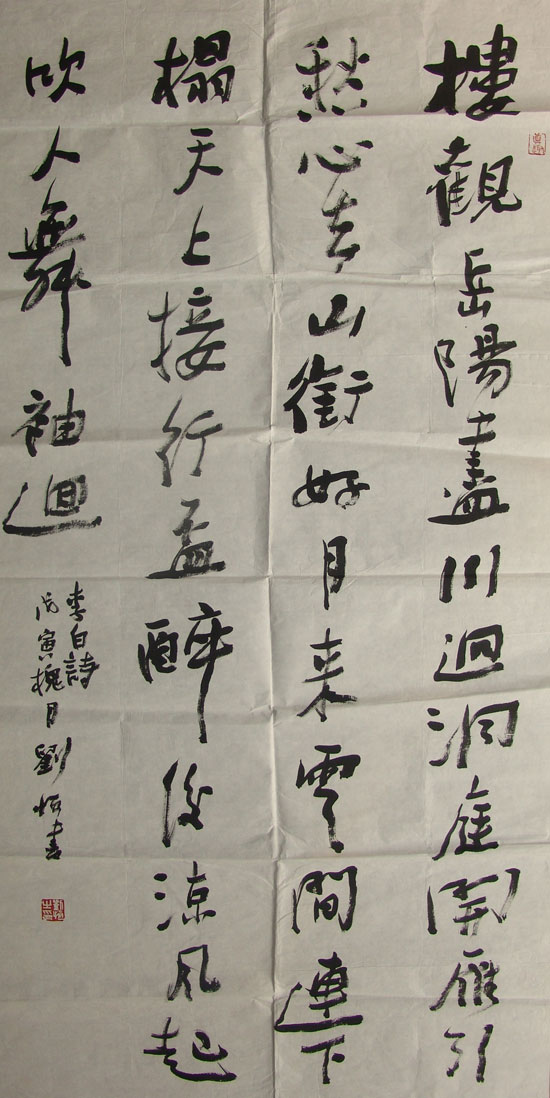 樓觀岳陽盡川迴洞庭開雁引
愁心去山銜好月来雲間連下
榻天上接行盃醉後涼風起
吹人舞袖迴
李白詩
戊寅槐月劉恒書